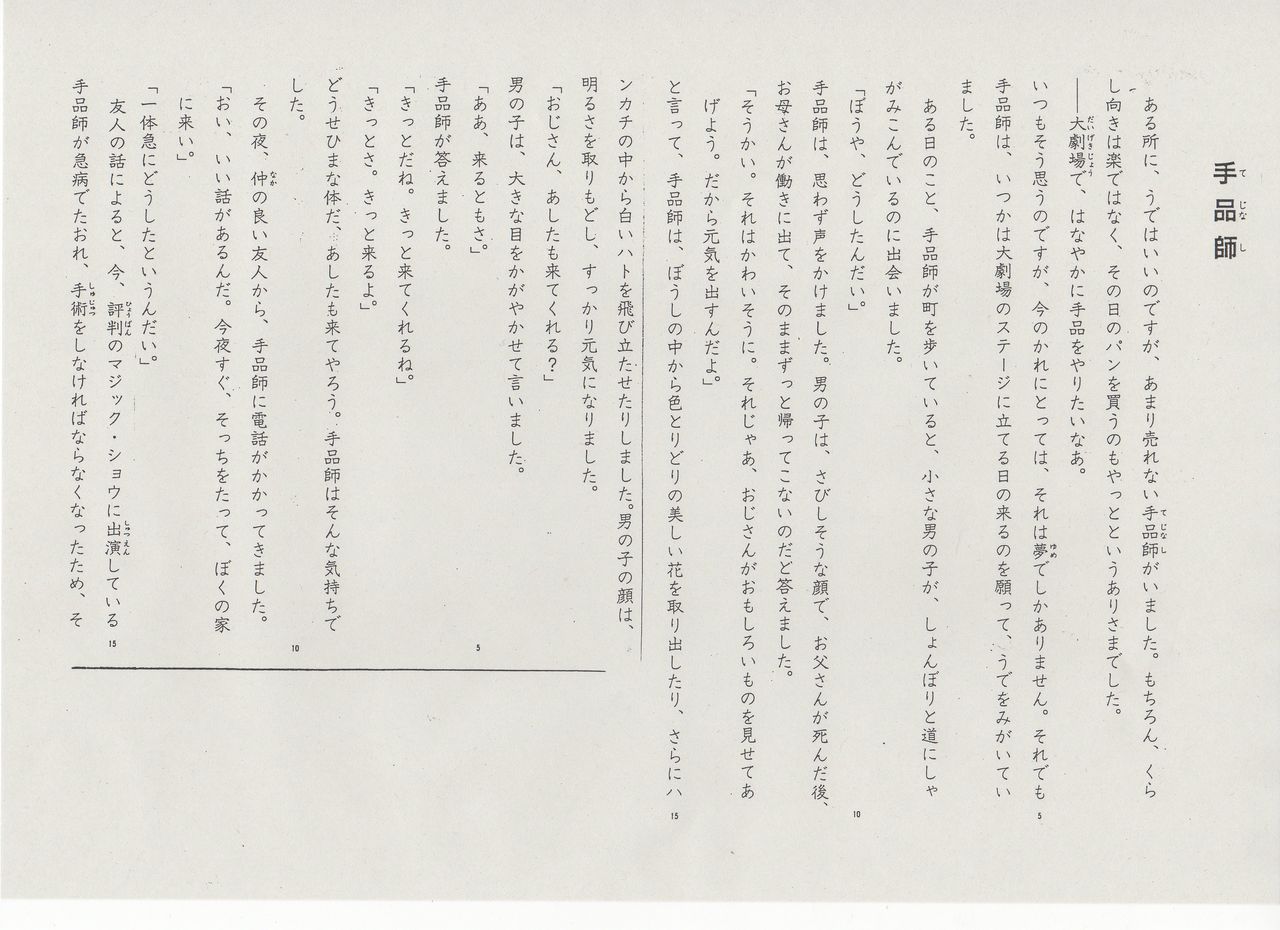 手品師
ある所に、うではいいのですが、あまり売れない手品師がいました。もちろん、くら
し向きは楽ではなく、その日のパンを買うのもやっとというありさまでした。
──大劇場で、はなやかに手品をやりたいなあ。
いつもそう思うのですが、今のかれにとっては、それは夢でしかありません。それでも
手品師は、いつかは大劇場のステージに立てる日の来るのを願って、うでをみがいてい
ました。
ある日のこと、手品師が町を歩いていると、小さな男の子が、しょんぼりと道にしゃ
がみこんでいるのに出会いました。
「ぼうや、どうしたんだい。」
手品師は、思わず声をかけました。男の子は、さびしそうな顔で、お父さんが死んだ後、
お母さんが働きに出て、そのままずっと帰ってこないのだと答えました。
「そうかい。それはかわいそうに。それじゃあ、おじさんがおもしろいものを見せてあ
げよう。だから元気を出すんだよ。」
と言って、手品師は、ぼうしの中から色とりどりの美しい花を取り出したり、さらにハ
ンカチの中から白いハトを飛び立たせたりしました。男の子の顔は、
明るさを取りもどし、すっかり元気になりました。
「おじさん、あしたも来てくれる？」
男の子は、大きな目をかがやかせて言いました。
「ああ、来るともさ。」
手品師が答えました。
「きっとだね。きっと来てくれるね。」
「きっとさ。きっと来るよ。」
どうせひまな体だ、あしたも来てやろう。手品師はそんな気持ちで
した。
その夜、仲の良い友人から、手品師に電話がかかってきました。
「おい、いい話があるんだ。今夜すぐ、そっちをたって、ぼくの家
に来い。」
「一体急にどうしたというんだい。」
友人の話によると、今、評判のマジック・ショウに出演している
手品師が急病でたおれ、手術をしなければならなくなったため、そ